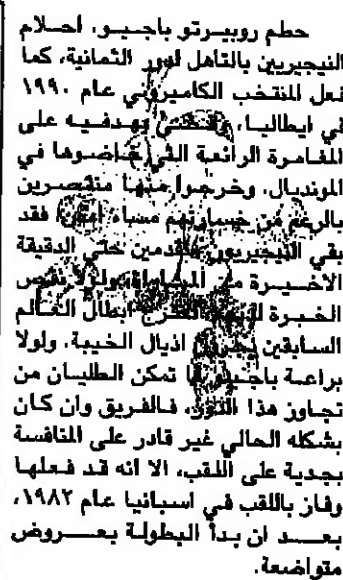 حطم روبيرتو باجيو، احلام
النيجيريين بالتاهل لدور الثمانية، كما
فعل المنتخب الكاميروني عام ١٩٩٠
في ايطاليا، وقضى بهدفيه على
المغامرة الرائعة التي خاضوها في
المونديال، وخرجوا منها منتصرين
بالرغم من خسارتهم مساء امس، فقد
بقي النيجيريون متقدمين حتى الدقيقة
الاخيرة من المباراة، ولولا نقص
الخبرة لخرج ابطال العالم
السابقين يجرون اذيال الخيبة. ولولا
براعة باجيو لما تمكن الطليان من
تجاوز هذا الدور، فالفريق وان كان
بشكله الحالي غير قادر على المنافسة
بجدية على اللقب، الا انه قد فعلها
وفاز باللقب في اسبانيا عام ١٩٨٢،
بعد ان بدأ البطولة بعروض
متواضعة.